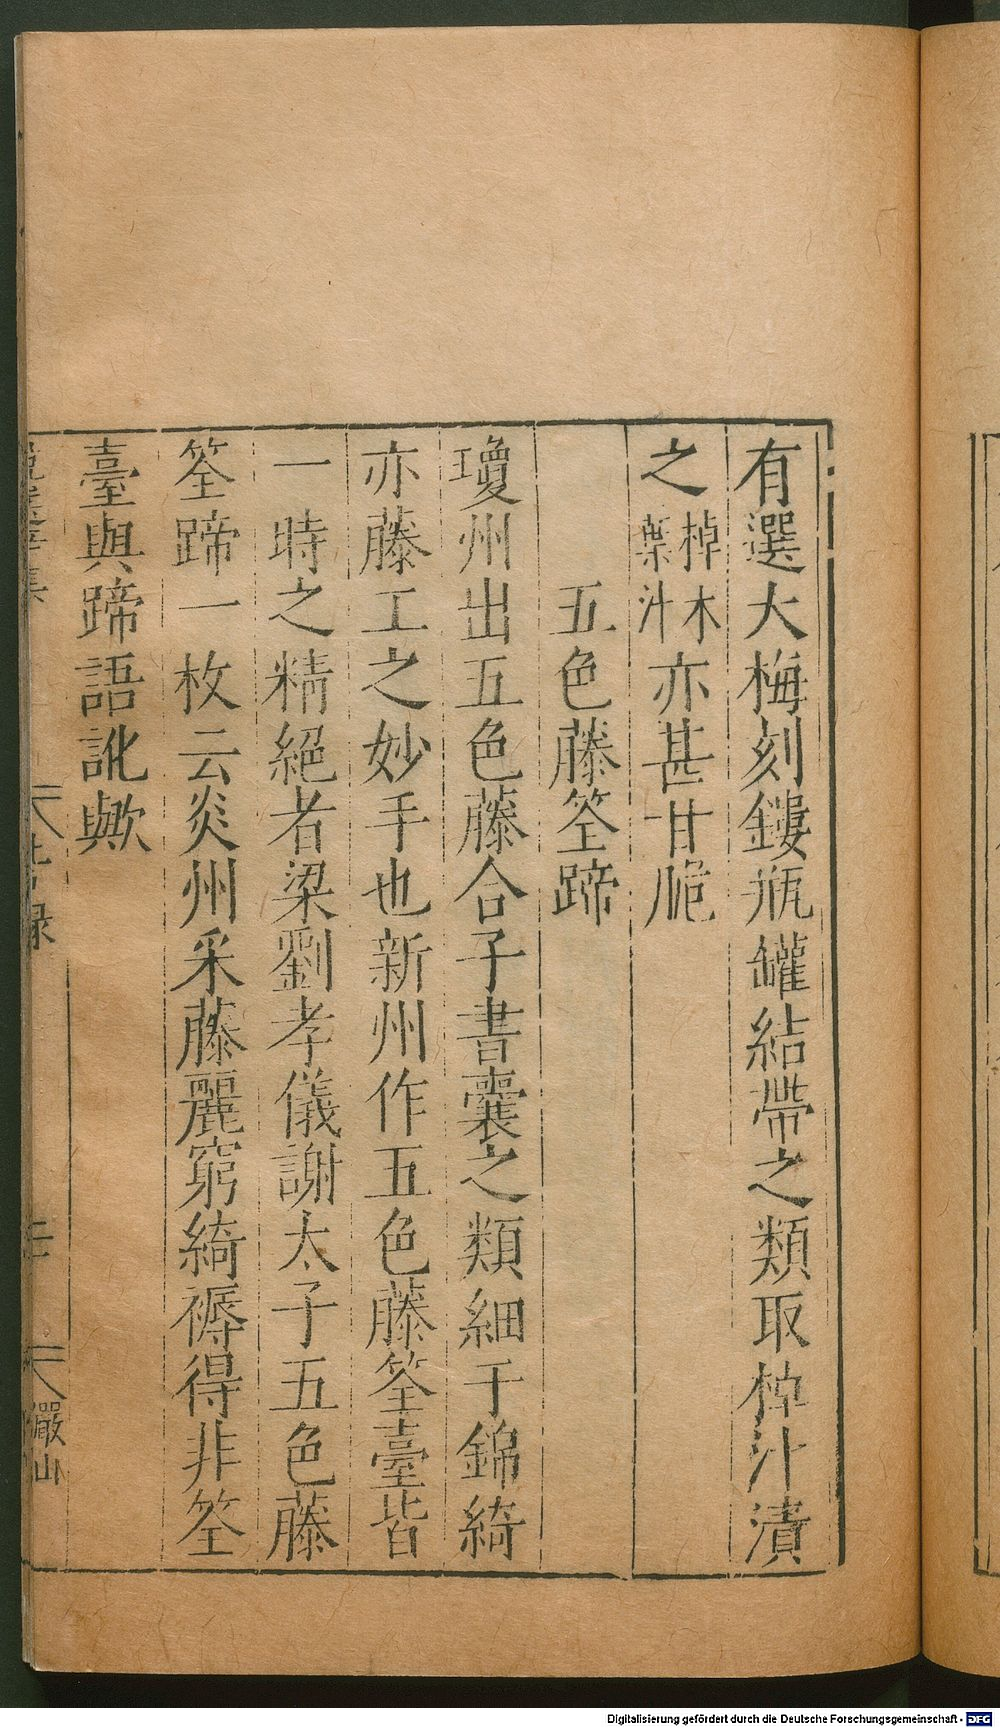 有選大梅刻鏤瓶罐結帶之類取棹汁漬
之棹木葉汁亦甚甘脆
五色藤筌蹄
瓊州出五色藤合子書囊之類細于錦綺
亦藤工之妙手也新州作五色藤筌臺皆
一時之精絕者梁劉孝儀謝太子五色藤
筌蹄一枚云炎州采藤麗窮綺褥得非筌
臺與蹄語訛歟
儼山
Digitalisierung gefördert durch die Deutsche Forschungsgemeinschaft - DFG